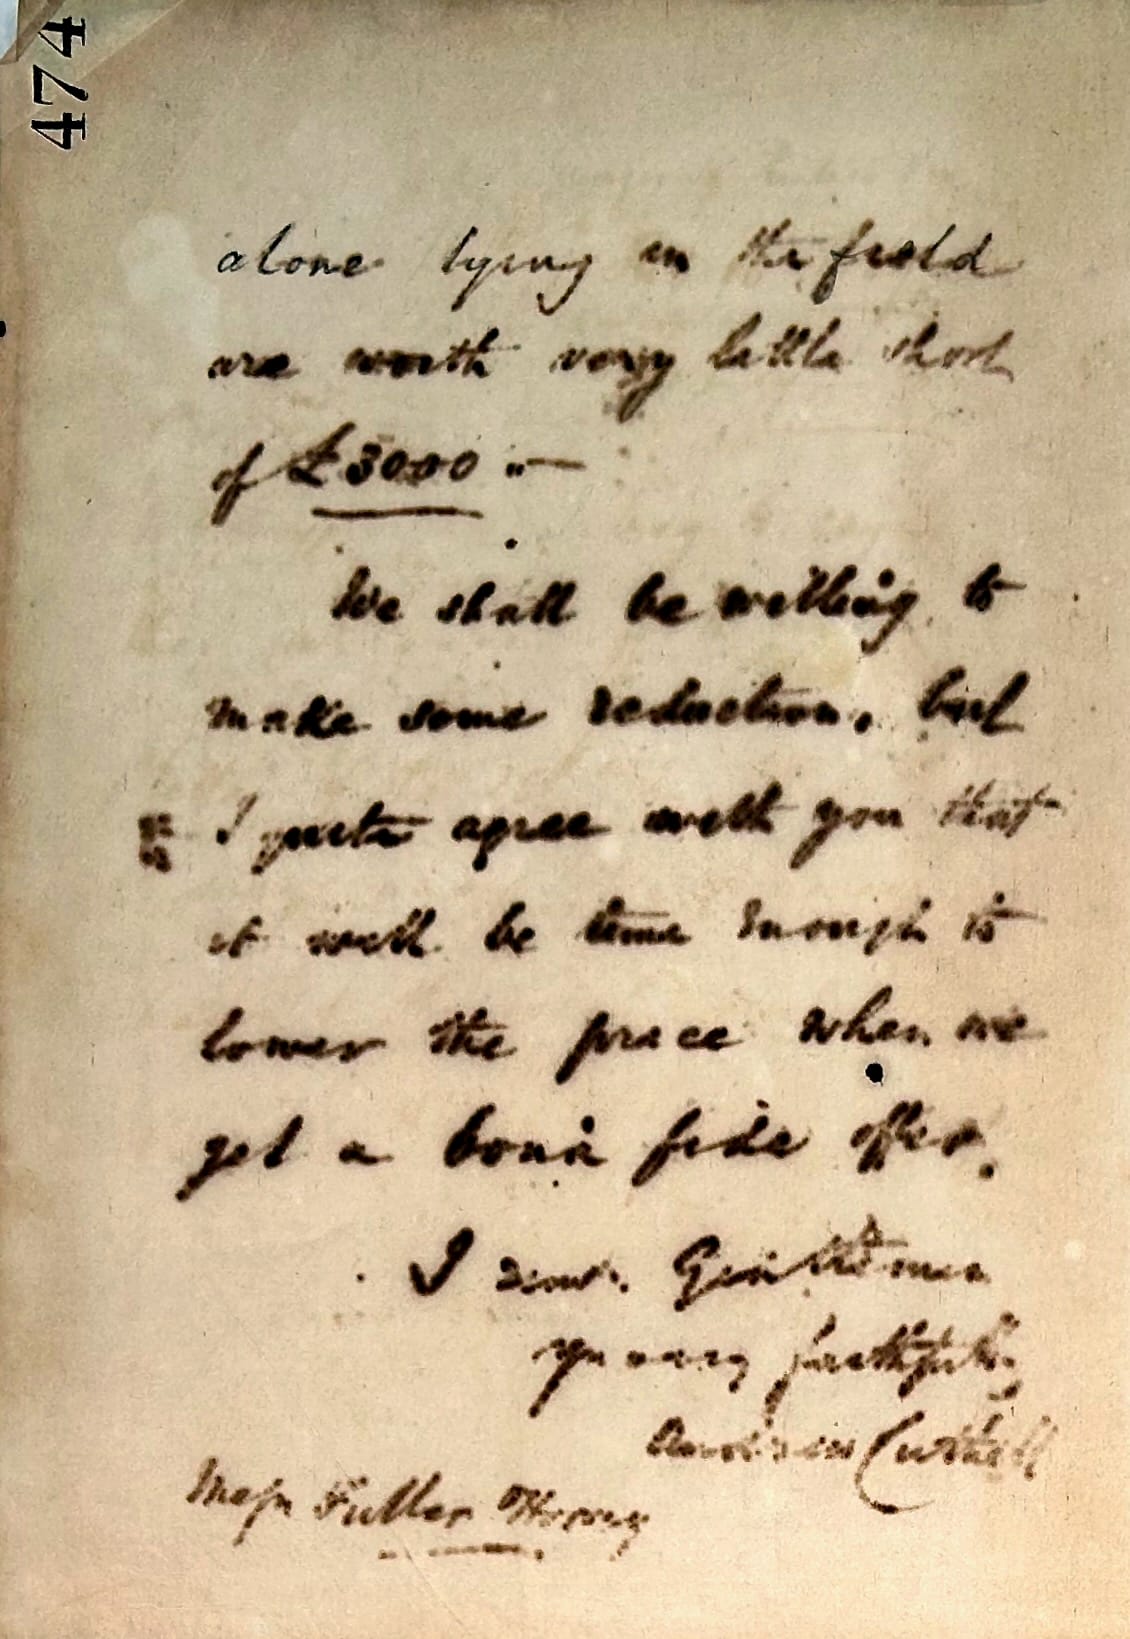 474
alone lying in the field
are worth very little short
of £3000 "—
We shall be willing to
make some reduction, but
I quite agree with you that
it will be time enough to
lower the price when we
get a bonâ fide offer.
I am. Gentlemen
yrs very faithfully
Andrew Cuthell
Messrs Fuller Horsey